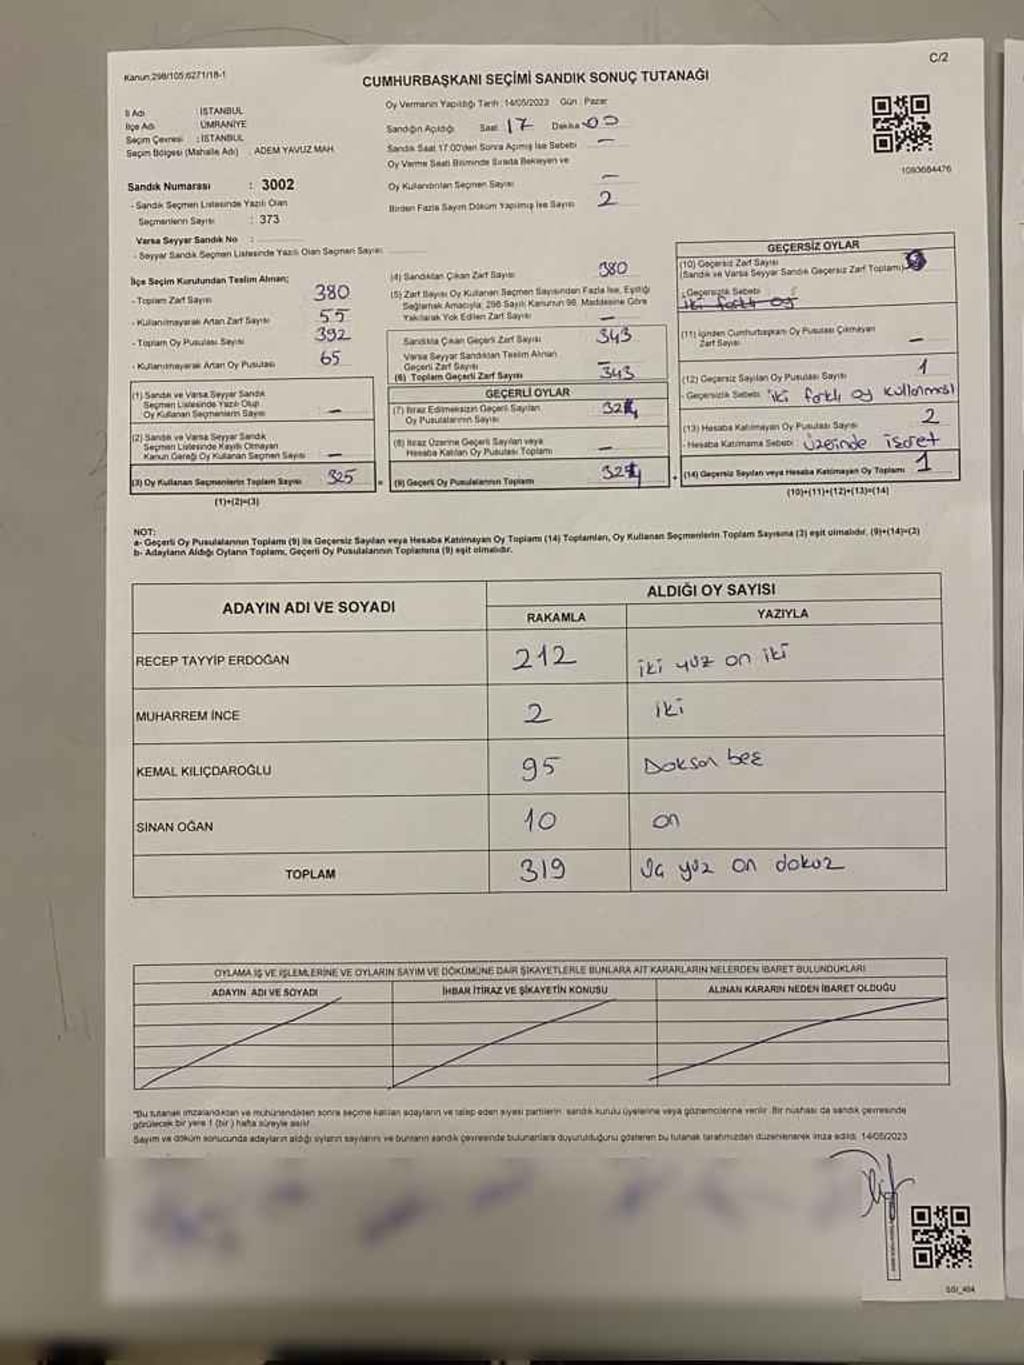 C/2
Kanun:298/105;6271/18-1
CUMHURBAŞKANI SEÇİMİ SANDIK SONUÇ TUTANAĞI
İl Adı : İSTANBUL
İlçe Adı : ÜMRANİYE
Seçim Çevresi : İSTANBUL
Seçim Bölgesi (Mahalle Adı) : ADEM YAVUZ MAH.
Sandık Numarası : 3002
- Sandık Seçmen Listesinde Yazılı Olan
Seçmenlerin Sayısı : 373
Varsa Seyyar Sandık No :
- Seyyar Sandık Seçmen Listesinde Yazılı Olan Seçmen Sayısı:
Oy Vermenin Yapıldığı Tarih : 14/05/2023 Gün : Pazar
Sandığın Açıldığı Saat 17 Dakika 00
Sandık Saat 17.00'den Sonra Açılmış İse Sebebi —
Oy Verme Saati Bitiminde Sırada Bekleyen ve
Oy Kullandırılan Seçmen Sayısı —
Birden Fazla Sayım Döküm Yapılmış İse Sayısı 2
1093684476
İlçe Seçim Kurulundan Teslim Alınan;
- Toplam Zarf Sayısı 380
- Kullanılmayarak Artan Zarf Sayısı 55
- Toplam Oy Pusulası Sayısı 392
- Kullanılmayarak Artan Oy Pusulası 65
(1) Sandık ve Varsa Seyyar Sandık
Seçmen Listesinde Yazılı Olup
Oy Kullanan Seçmenlerin Sayısı —
(2) Sandık ve Varsa Seyyar Sandık
Seçmen Listesinde Kayıtlı Olmayan
Kanun Gereği Oy Kullanan Seçmen Sayısı —
(3) Oy Kullanan Seçmenlerin Toplam Sayısı 325
(1)+(2)=(3)
(4) Sandıktan Çıkan Zarf Sayısı 380
(5) Zarf Sayısı Oy Kullanan Seçmen Sayısından Fazla İse, Eşitliği
Sağlamak Amacıyla; 298 Sayılı Kanunun 98. Maddesine Göre
Yakılarak Yok Edilen Zarf Sayısı —
Sandıkta Çıkan Geçerli Zarf Sayısı 343
Varsa Seyyar Sandıktan Teslim Alınan
Geçerli Zarf Sayısı —
(6) Toplam Geçerli Zarf Sayısı 343
GEÇERLİ OYLAR
(7) İtiraz Edilmeksizin Geçerli Sayılan
Oy Pusulalarının Sayısı
(8) İtiraz Üzerine Geçerli Sayılan veya
Hesaba Katılan Oy Pusulası Toplamı —
(9) Geçerli Oy Pusulalarının Toplamı
GEÇERSİZ OYLAR
(10) Geçersiz Zarf Sayısı
(Sandık ve Varsa Seyyar Sandık Geçersiz Zarf Toplamı)
- Geçersizlik Sebebi :
iki farklı oy
(11) İçinden Cumhurbaşkanı Oy Pusulası Çıkmayan
Zarf Sayısı —
(12) Geçersiz Sayılan Oy Pusulası Sayısı 1
- Geçersizlik Sebebi iki farklı oy kullanması
(13) Hesaba Katılmayan Oy Pusulası Sayısı 2
- Hesaba Katılmama Sebebi üzerinde işaret
(14) Geçersiz Sayılan veya Hesaba Katılmayan Oy Toplamı 1
(10)+(11)+(12)+(13)=(14)
NOT:
a- Geçerli Oy Pusulalarının Toplamı (9) ile Geçersiz Sayılan veya Hesaba Katılmayan Oy Toplamı (14) Toplamları, Oy Kullanan Seçmenlerin Toplam Sayısına (3) eşit olmalıdır. (9)+(14)=(3)
b- Adayların Aldığı Oyların Toplamı, Geçerli Oy Pusulalarının Toplamına (9) eşit olmalıdır.
ADAYIN ADI VE SOYADI ALDIĞI OY SAYISI
RAKAMLA YAZIYLA
RECEP TAYYİP ERDOĞAN 212 iki yüz on iki
MUHARREM İNCE 2 iki
KEMAL KILIÇDAROĞLU 95 Doksan beş
SİNAN OĞAN 10 on
TOPLAM 319 Üç yüz on dokuz
OYLAMA İŞ VE İŞLEMLERİNE VE OYLARIN SAYIM VE DÖKÜMÜNE DAİR ŞİKAYETLERLE BUNLARA AİT KARARLARIN NELERDEN İBARET BULUNDUKLARI
ADAYIN ADI VE SOYADI İHBAR İTİRAZ VE ŞİKAYETİN KONUSU ALINAN KARARIN NEDEN İBARET OLDUĞU
*Bu tutanak imzalandıktan ve mühürlendikten sonra seçime katılan adayların ve talep eden siyasi partilerin sandık kurulu üyelerine veya gözlemcilerine verilir. Bir nüshası da sandık çevresinde
görülecek bir yere 1 (bir) hafta süreyle asılır.
Sayım ve döküm sonucunda adayların aldığı oyların sayılarını ve bunların sandık çevresinde bulunanlara duyurulduğunu gösteren bu tutanak tarafımızdan düzenlenerek imza edildi. 14/05/2023